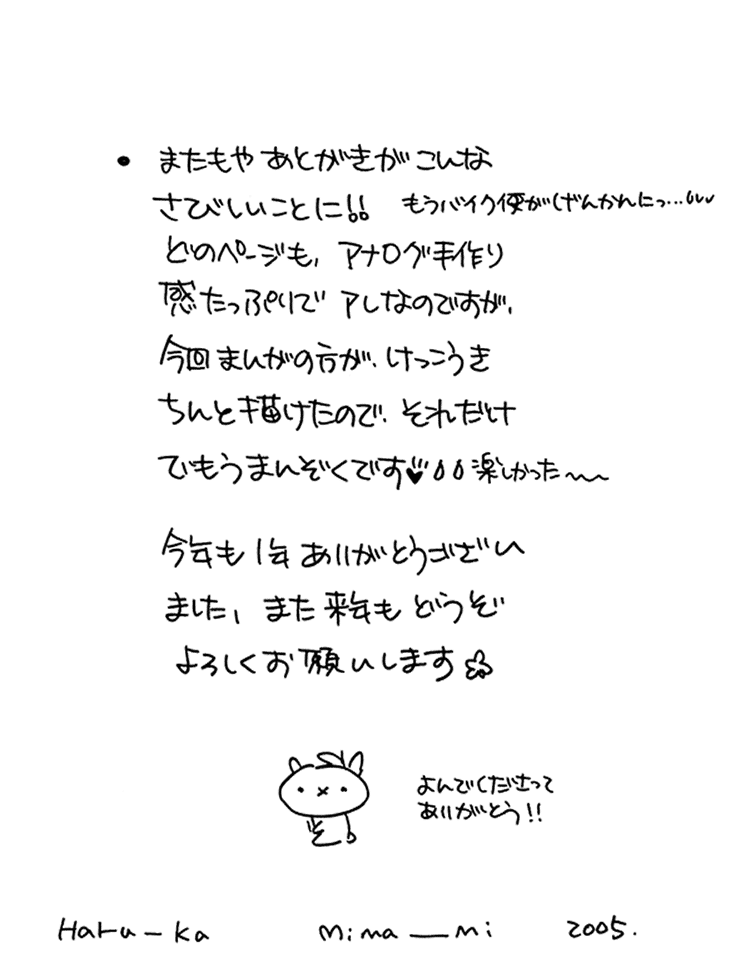 • またもや あとがきが こんな
さびしいことに!! もうバイク便がげんかれにっ…
どのページも、アナログ手作り
感たっぷりで アレなのですが、
今回まんがの方が、けっこうき
ちんと描けたので、それだけ
でもうまんぞくです♥ 楽しかった〜〜
今年も 1年 ありがとうござい
ました、また来年も どうぞ
よろしくお願いします
よんでくださって
ありがとう!!
Haru–ka Mima__mi 2005.